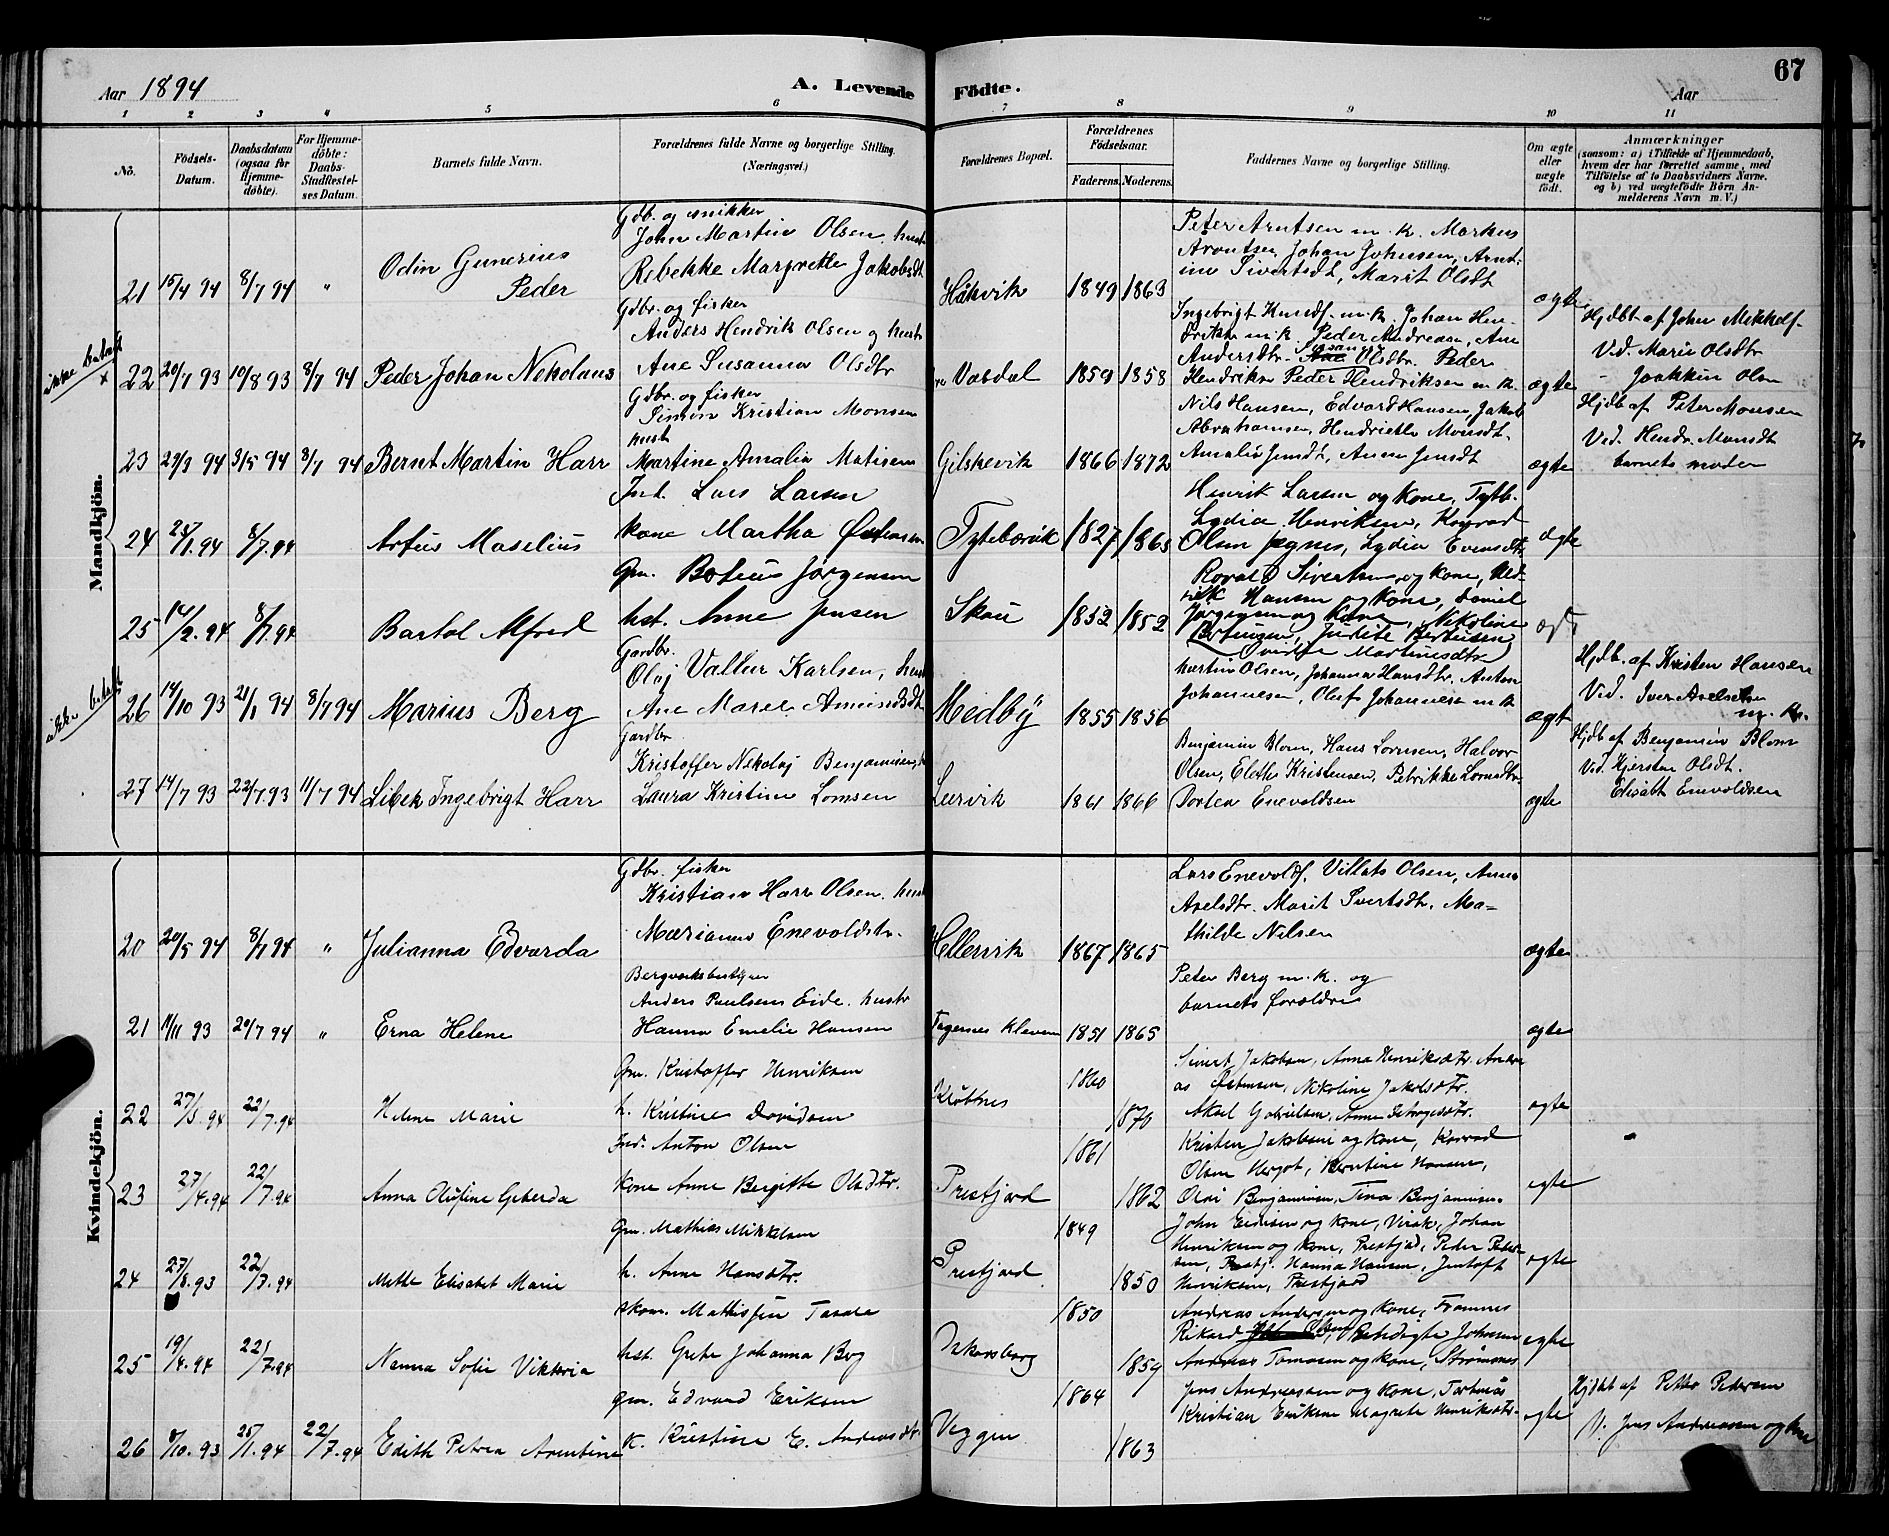 Aar 1894
A. Levende Fødte.
67
Aar
1 2 3 4 5 6 7 8 9 10 11
No.
Födsels-Datum.
Daabsdatum (ogsaa for Hjemmedöbte).
For Hjemmedöbte: Daabs-Stadfæstelses Datum.
Barnets fulde Navn.
Forældrenes fulde Navne og borgerlige Stilling. (Næringsvei.)
Forældrenes Bopæl.
Forældrenes Fødselsaar.
Faderens. Moderens.
Faddernes Navne og borgerlige Stilling.
Om ægte eller uægte födt.
Anmærkninger
(saasom: a) i Tilfælde af Hjemmedaab, hvem der har forrettet samme, med Tilföielse af to Daabsvidners Navne, og b) ved uægtefödte Börn Anmelderens Navn m. V.)
Mandkjön.
21 15/4 94 8/7 94 " Odin Gunerius Peder
Gdb. og snikker
John Martin Olsen, hust
Rebekke Margrethe Jakobsdt
Håkvik 1849 1863
Peter Arntsen m. k. Markus
Arontsen, Johan Johnsen, Arnt-
ine Sivertsdt, Marit Olsdt
ægte
ikke betalt
x
22 20/7 93 10/8 93 8/7 94 Peder Johan Nikolaus
Gdbr. og fisker
Anders Hendrik Olsen og hustr
Ane Susanna Olsdtr
Vasdal 1859 1858
Ingebrigt Knudsf. m. k. Johan Hen-
driksn m. k. Peder Andreasn, Ane
Andersdtr. Susanne Olsdtr. Peder
Hendriksn
ægte
Hjdbt af John Mikkels.
Vid. Marie Olsdtr
- Joakkim Olsn
23 29/3 94 3/5 94 8/7 94 Bernt Martin Harr
Gdbr. og fisker
Simon Kristian Monsen
hust
Martine Amalia Matisen
Gilskevik 1866 1872
Peder Hendriksen m. k.
Nils Hansen, Edvard Hansen, Jakob
Abrahamsen, Hendriette Monsdt.
Amalie Jensdt, Anne Jensdt
ægte
Hjdb af Peter Monsen
Vid. Hendr. Monsdt
barnets moder
24 8/7.94 Artus Maselius
Ind. Lars Larsen
kone Martha Østensen
Tytebærvik 1827 1865
Henrik Larsen og kone, Tytb.
Lydia Henriksen, Konrad
Olsen, Lydia Evensdtr
ægte
25 14/2.94 8/7.94 Bartol Alfred
Gm. Boteus Jørgensen
hst. Anne Jensen
Skau 1852 1852
Rovald Sivertsen og kone,
Hansen og kone, Daniel
Jørgensen og kone, Nikoline
ægte
ikke betalt
26 14/10 93 21/1 94 8/7 94 Marius Berg
Gardbr.
Oluj Vallur Karlsen, hust
Ane Maree Amundsdt
Medby 1855 1856
Martin Olsen, Johanna Hansdtr. Anton
Johannesen, Oluf Johannesen m k
ægt
Hjdb. af Kristen Hansen
Vid. Iver Axelsen
m. k.
27 14/7 93 22/7.93 11/7 94 Libek Ingebrigt Harr
Gardbr.
Kristoffer Nekolaj Benjaminsen,
Laura Kristine Lornsen
Leirvik 1861 1866
Benjamin Blom, Hans Lornsen, Halvor
Olsen, Elethe Kristensen, Petrikke Lornsdtr
Dortea Enevoldsen
ægte
Hjdb af Benjamin Blom
Vid. Kjersten Olsdt.
Elisabt Enevoldsen
Kvindekjön.
20 20/5 94 8/7 94 " Julianna Edvarda
Gdbr. fisker
Kristian Harr Olsen. hust
Marianne Enevoldstr.
Hellervik 1867 1865
Lars Enevolds. Villats Olsen, Anne
Axelsdtr. Marit Ivertsdt. Ma-
thilde Nilsen
ægte
21 11/11 93 20/7 94 " Erna Helene
Bergverksbestyrer
Anders Paulsens Eide. hustr
Hanna Emelie Hansen
Tagernes Kleven 1851 1865
Peter Berg m. k. og
barnets forældre
ægte
22 27/5.94 22/7.94 Helene Marie
Gm. Kristoffer Henriksen
h. Kristine Davidsen
1860 1870
Sivert Jakobsen, Anna Henriksdtr. Andre-
as Østensen, Nikoline Jakobsdtr.
Aksel Gabrielsen, Anne
ægte
23 27/4.94 22/7.94 Anna Olufine Geberda
Ind. Anton Olsen
kone Anne Bergitte Olsdtr.
Prestfjord 1861 1862
Kristen Jakobsen og kone, Konrad
Olsen Hergot, Berntine Hansen,
Olai Benjaminsen, Tina Benjaminsn.
ægte
24 27/8.93 22/7.94 Mette Elisabet Marie
Gm. Mathias Mikkelsen
h. Anne Hansdtr.
Prestfjord 1849 1850
John Eriksen og kone, Virak, Johan
Henriksen og kone, Prestfjord, Peder Peter-
sen, Prestfj. Hanna Hansen, Jentoft
Henriksen, Prestfjord
ægte
25 19/4.94 22/7.94 Nanna Sofie Viktoria
skom. Mathisjen
hst. Grete Johanna Bog
Oskarsborg 1850 1859
Andreas Andersen og kone, Framnes
Rikard Olsen, Benedigte Johnsen
Andreas Tomasen og kone, Strømsnes
ægte
26 9/10.93 28/1.94 22/7.94 Edith Petrea Arentine
gm. Edvard Eriksen
k. Kristine E. Andersdt.
Veggen 1864 1863
Jens Andreassen og kone,
Kristian Eriksen Magrete Henriksdtr.
ægte
Hjdbt af Petter Pedersen
V. Jens Andreassen og kone